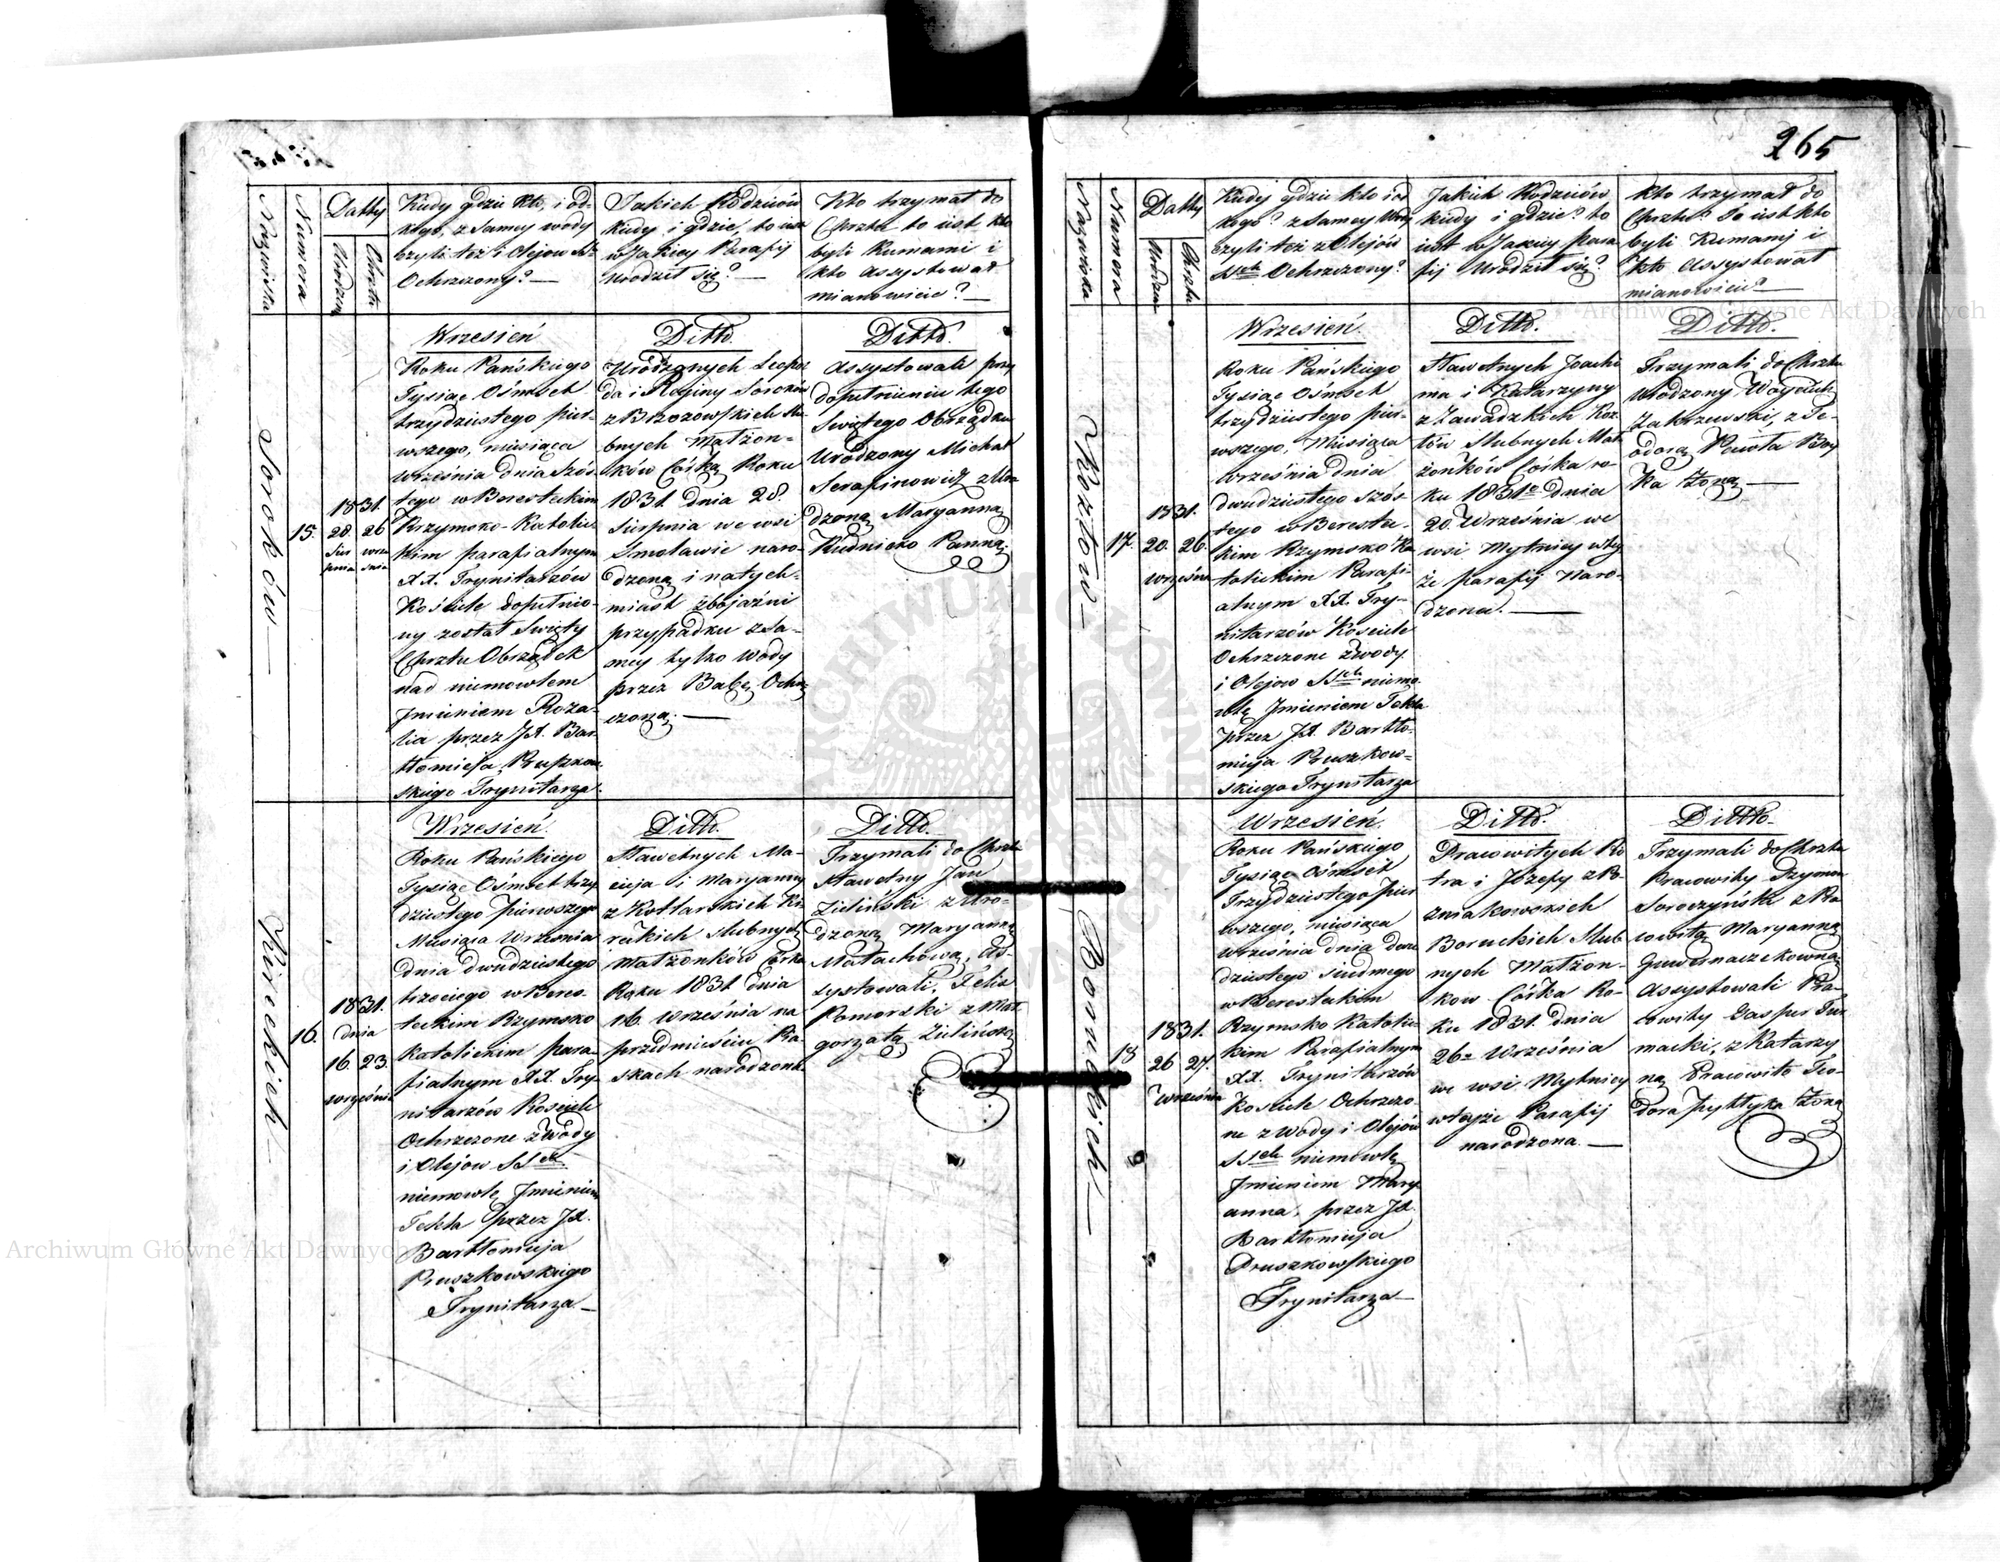 265
Nazwiska
Numera
Datty
Urodzin
Chrztu
Kiedy gdzie kto, i od-
kogo, z samey wody
czyli też i Olejow SS.
Ochrzczony? —
Jakich Rodziców
kiedy i gdzie, to iest
w Jakiey Parafij
urodził się? —
Kto trzymał do
Chrztu to iest kto
byli Kumami i
kto assystował
mianowicie? —
Sorokow —
15.
1831.
28. 26
Sier wrze
pnia śnia
Wrzesień
Roku Pańskiego
Tysiąc Ośmset
trzydziestego pier-
wszego, miesiąca
Września dnia Szós-
tego w Beresteckim
Rzymsko-Katolic
kim parafialnym
XX. Trynitarzów
Kościele dopełnio-
ny został Swięty
Chrztu Obrządek
nad niemowlem
Jmieniem Roza-
lia przez JX. Bar
tłomieja Pruszkow
skiego Trynitarza.
Ditto.
Urodzonych Leopol
da i Reginy Soroków
z Brzozowskich Slu
bnych Małżon-
ków Córkę Roku
1831 dnia 28.
Sierpnia we wsi
Smolawie naro-
dzoną i natych-
miast zbojaźni
przypadku z Sa-
mey tylko Wody
przez Babę Ochrz
czoną. —
Ditto.
Assystowali przy
dopełnieniu tego
Swiętego Obrządku
Urodzony Michał
Serafinowicz z Uro
dzoną Maryanną
Rudnicko Panną
Kireckich —
16.
1831.
dnia
16. 23.
września
Wrzesień.
Roku Pańskiego
Tysiąc Ośmset trzy
dziestego pierwszego
Miesiąca Września
dnia dwudziestego
trzeciego w Beres-
teckim Rzymsko
Katolickim para-
fialnym XX. Try-
nitarzów Kościele
Ochrzczone z Wody
i Olejow SSch
niemowle Jmieniem
Tekla przez JX.
Bartłomieja
Pruszkowskiego
Trynitarza —
Ditto.
Sławetnych Ma-
cieja i Maryanny
z Kotlarskich Ki-
reckich slubnych
Małżonków Córka
Roku 1831 dnia
16. września na
przedmieściu Pia-
skach narodzona.
Ditto.
Trzymali do Chrztu
Sławetny Jan
Zieliński z Uro-
dzoną Maryanną
Małachową, As-
systowali, Felix
Pomorski z Mał
gorzatą Zielińską
Nazwiska
Numera
Datty
Urodzin
Chrztu
Kiedy gdzie kto i od
kogo? z Samey Wody
czyli też z Olejów
SSch Ochrzczony?
Jakich Rodziców
kiedy i gdzie? to
iest w Jakiey para
fij Urodził się?
Kto trzymał do
Chrztu? to iest kto
byli Kumamj i
kto Assystował
mianowicie? —
Kozłow —
17.
1831.
20. 26.
września
Wrzesień.
Roku Pańskiego
Tysiąc Ośmset
trzydziestego pier-
wszego, Miesiąca
września dnia
dwudziestego szós
tego w Bereste-
kim Rzymsko Ka
tolickim Parafi-
alnym XX. Try-
nitarzów Kosciele
Ochrzczone z Wody
i Olejow SSch niemo
wlę Jmieniem Tekla
przez JX. Bartło-
mieja Pruszkow-
skiego Trynitarza
Ditto.
Sławetnych Joachi
ma i Katarzyny
z Zawadzkich Koz
łów Slubnych Mał
żonków Córka ro-
ku 1831o dnia
20. Września we
wsi Mytnicy wtey
że parafij Naro-
dzona. —
Ditto.
Trzymali do Chrztu
Urodzony Woyciech
Zakrzewski, z Te-
odorą Pawła Boy
ka żoną —
Boruckich —
18
1831.
26 27.
Września
Wrzesień.
Roku Pańskiego
Tysiąc Ośmset
Trzydziestego pier
wszego, miesiąca
Września dnia dwu
dziestego siedmego
w Beresteckim
Rzymsko Katolic
kim Parafialnym
XX. Trynitarzów
Kosciele Ochrzczo-
ne z Wody i Olejów
SSch niemowlę
Jmieniem Mary
anna, przez JX.
Bartłomieja
Pruszkowskiego
Trynitarza —
Ditto.
Pracowitych Pio
tra i Józefy z Po-
zniakowskich
Boruckich Slub
nych Małżon-
kow Córka Ro-
ku 1831. dnia
26o Września
we wsi Mytnicy
wteyże Parafij
narodzona. —
Ditto
Trzymali do Chrztu
Pracowity Szymon
Soroczyński z Pra
cowitą Maryanną
Assystowali Pra-
cowity Gasper Tur
macki, z Katarzy
ną Pracowite Teo-
dora żoną